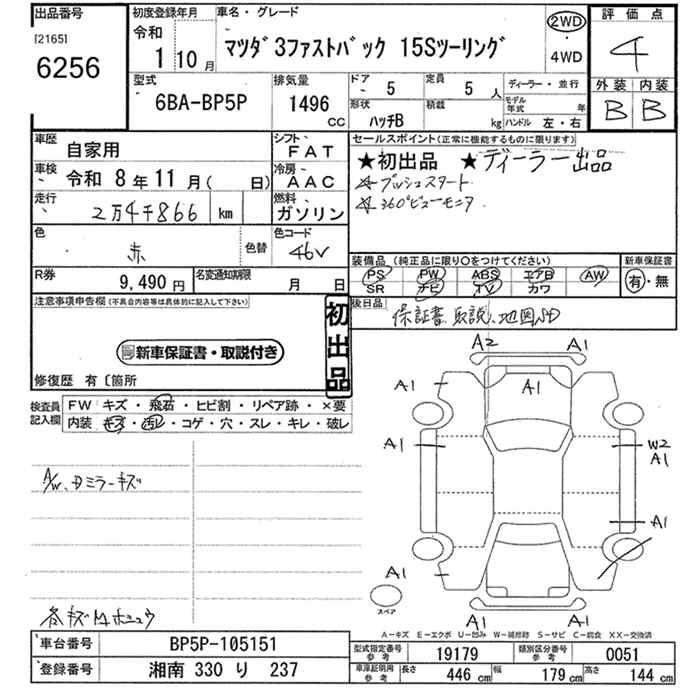 出品番号
[2165]
6256
初度登録年月
令和
1 10 月
車名・グレード
マツダ 3ファストバック 15Sツーリング
2WD
4WD
評価点
4
外装 内装
B B
型式
6BA-BP5P
排気量
1496
CC
ドア
5
定員
5 人
形状
ハッチB
積載
kg
ディーラー・並行
モデル年式 年
ハンドル 左・右
車歴
自家用
シフト
FAT
車検
令和 8 年 11 月 ( 日)
冷房
AAC
走行
2万4千866 km
燃料
ガソリン
色
赤
色替
色コード
46V
R券
9,490 円
名変通知期限
月 日
セールスポイント(正常に機能するものに限ります)
★初出品 ★ディーラー出品
☆プッシュスタート
☆360°ビューモニタ
装備品 (純正品に限り○をつけてください)
PS PW ABS エアB AW
SR ナビ TV カワ
新車保証書
有・無
後日品
保証書、取説、地図SD
注意事項申告欄(不具合内容等は具体的に記入して下さい)
初出品
新車保証書・取説付き
修復歴 有〔箇所
検査員記入欄
FW キズ・飛石・ヒビ割・リペア跡・×要
内装 キズ・汚レ・コゲ・穴・スレ・キレ・破レ
A/W、Dミラーキズ
各キズ
A2 A1
A1 A1
A1 W2
A1
A1
A1
A1 A1
スペア
A-キズ E-エクボ U-凹み W-補修跡 S-サビ C-腐食 XX-交換済
車台番号
BP5P-105151
登録番号
湘南 330 り 237
型式指定番号
参考
19179
類別区分番号
参考
0051
車庫証明用
参考
長さ 446 cm 幅 179 cm 高さ 144 cm